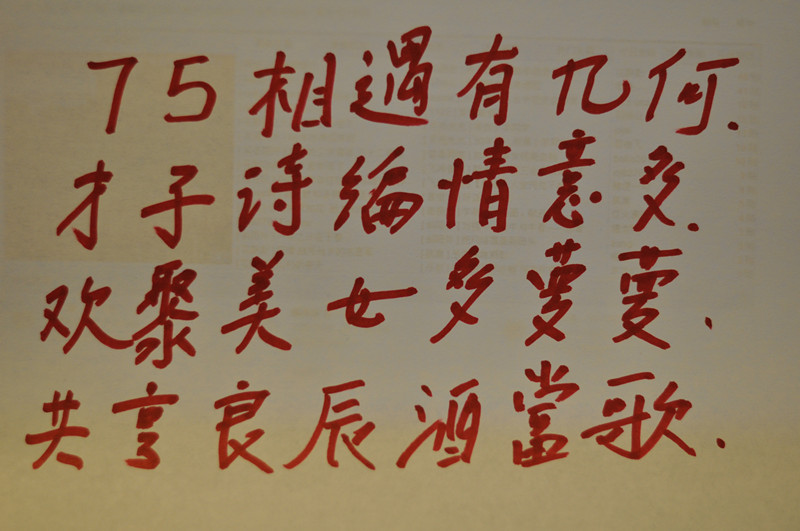 75相遇有几何.
才子诗编情意多.
欢聚美女多萝萝.
共享良辰酒當歌.